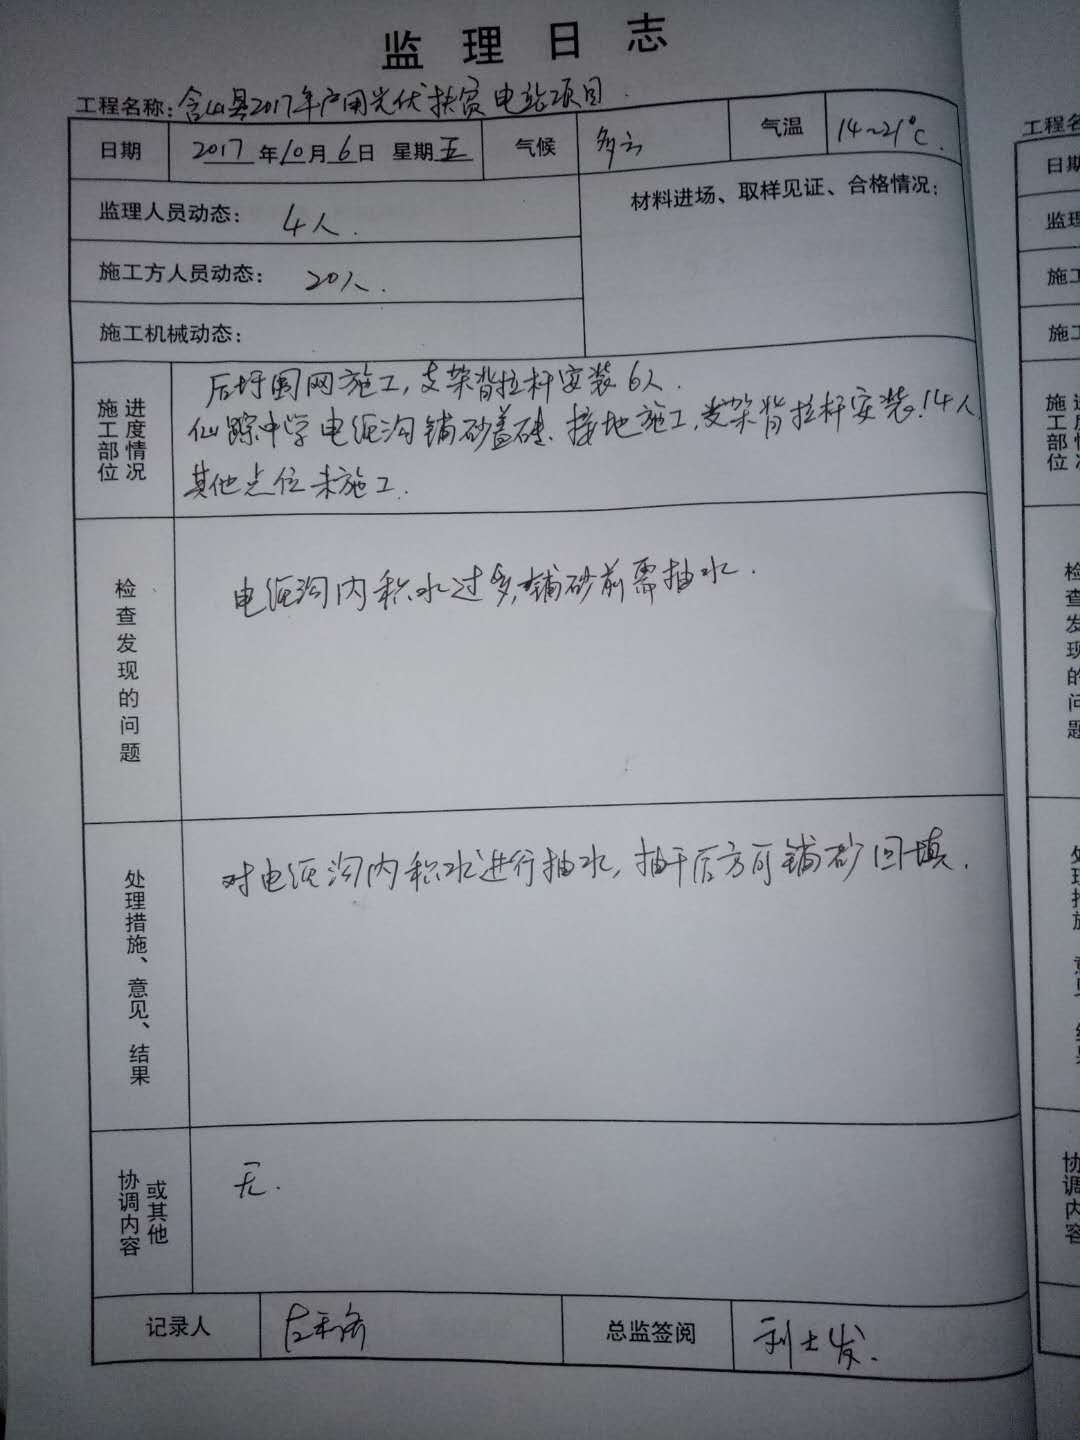 监理日志
工程名称：含山县2017年户用光伏扶贫电站项目
日期 2017年10月6日 星期五 气候 多云 气温 14~21℃.
监理人员动态： 4人.
材料进场、取样见证、合格情况：
施工方人员动态： 20人.
施工机械动态：
施工部位
进度情况
后圩围网施工,支架背拉杆安装6人.
仙踪中学电缆沟铺砂盖砖.接地施工,支架背拉杆安装.14人
其他点位未施工.
检查发现的问题
电缆沟内积水过多,铺砂前需抽水.
处理措施、意见、结果
对电缆沟内积水进行抽水,抽干后方可铺砂回填.
协调内容
或其他
无.
记录人
总监签阅
工程名
日期
监理
施工
施工
施工部位
检查发现的问题